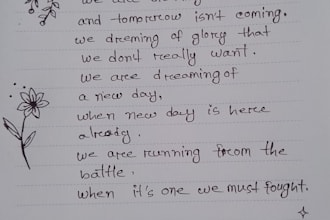 we are
and tomorrow isn't coming.
we dreming of glory that
we don't really want.
we are dreaming of
a new day,
when new day is here
already.
we are running from the
battle.
when it's one we must fought.